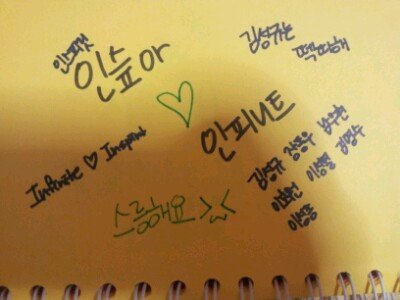 인피닛
인슾아
김성규는
뚁뚁해
Infinite ♡ Inspirit
인피니트
김성규 장동우 남우현
이호원 이성열 김명수
이성종
스릉해요 >_<